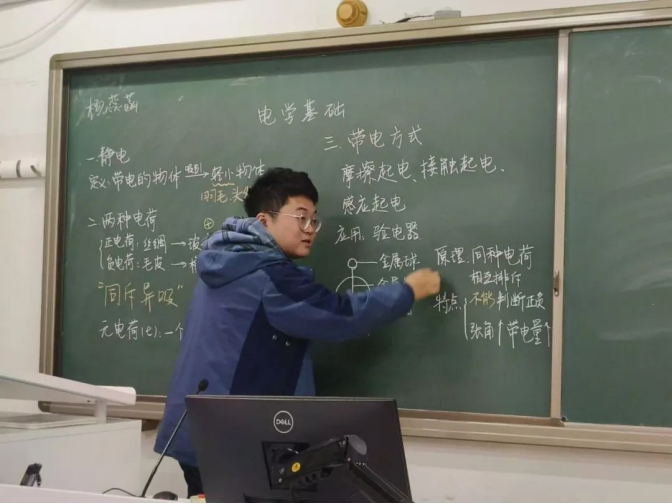 电学基础
一.静电
定义:带电的物体 吸引→ 轻小物体
羽毛、头
二.两种电荷
⊕
正电荷:丝绸→玻
负电荷:毛皮→
"同斥异吸"
元电荷(e):一个
三.带电方式
摩擦起电、接触起电、
感应起电
应用:验电器
金属球
原理:同种电荷
相互排斥
特点 不能判断正负
张角↑带电量↑
DELL